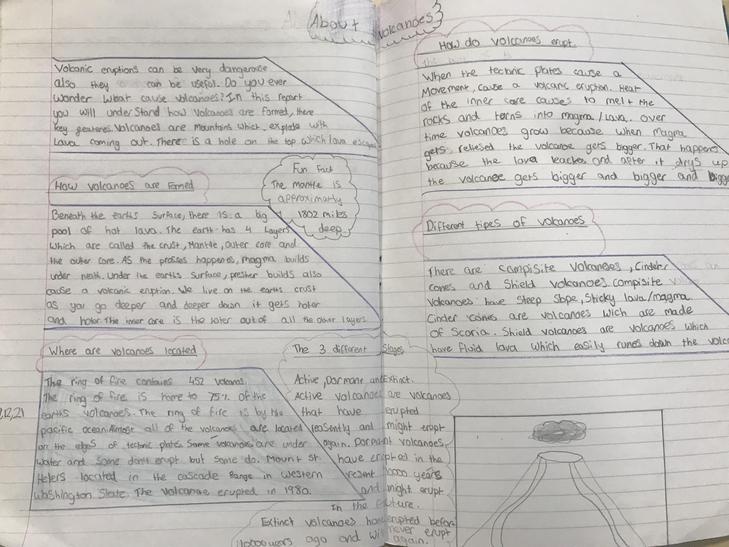 About volcanoes
Volcanic eruptions can be very dangerous
also they can be useful. Do you ever
wonder what cause volcanoes? In this report
you will understand how volcanoes are formed, there
key features. Volcanoes are mountains which explode with
Lava coming out. There is a hole on the top which lava escapes
How volcanoes are formed
Fun Fact
The mantle is
approximatly
1802 miles
deep.
Beneath the earths surface, there is a big
pool of hot lava. The earth has 4 Layers
which are called the crust, Mantle, outer core and
the outer core. As the happenes, magma builds
under neath. Under the earths surface, builds also
cause a volcanic eruption. We live on the earths crust
as you go deeper and deeper down it gets hoter
and hoter. The inner core is the hoter out of all the outer layers
Where are volcanoes located
The ring of fire contains 452 volcanos.
The ring of fire is home to 75% of the
earths volcanoes. The ring of fire is by the
pacific ocean. Almost all of the volcanoes are located
on the edges of tectonic plates. Some volcanoes are under
water and some dont erupt but some do. Mount St
Helers located in the cascade Range in western
Washington State. The Volcanoe erupted in 1980.
12,21
The 3 different Stages
Active, Dormant and Extinct.
Active volcanoes are volcanoes
that have erupted
resently and might erupt
again. Dormant volcanoes,
have erupted in the
resent 10000 years
and might erupt
In the future.
Extinct volcanoes have erupted before
10000 years ago and will never erupt
again.
How do volcanoes erupt
When the tectonic plates cause a
Movement, cause a volcanic eruption. Heat
of the inner core causes to melt the
rocks and torns into magma/Lava. over
time volcanoes grow because when magma
gets relesed the volcanoe gets bigger. That happens
because the lava and after it drys up
the volcanoe gets bigger and bigger and bigger
Different tipes of volcanoes
There are Campisite volcanoes, Cinder
cones and Shield volcanoes. Compisite
volcanoes have Steep Slope, Sticky lava/magma.
Cinder cones are volcanoes wich are made
of Scoria. Shield volcanoes are volcanoes which
have fluid lava which easily runes down the